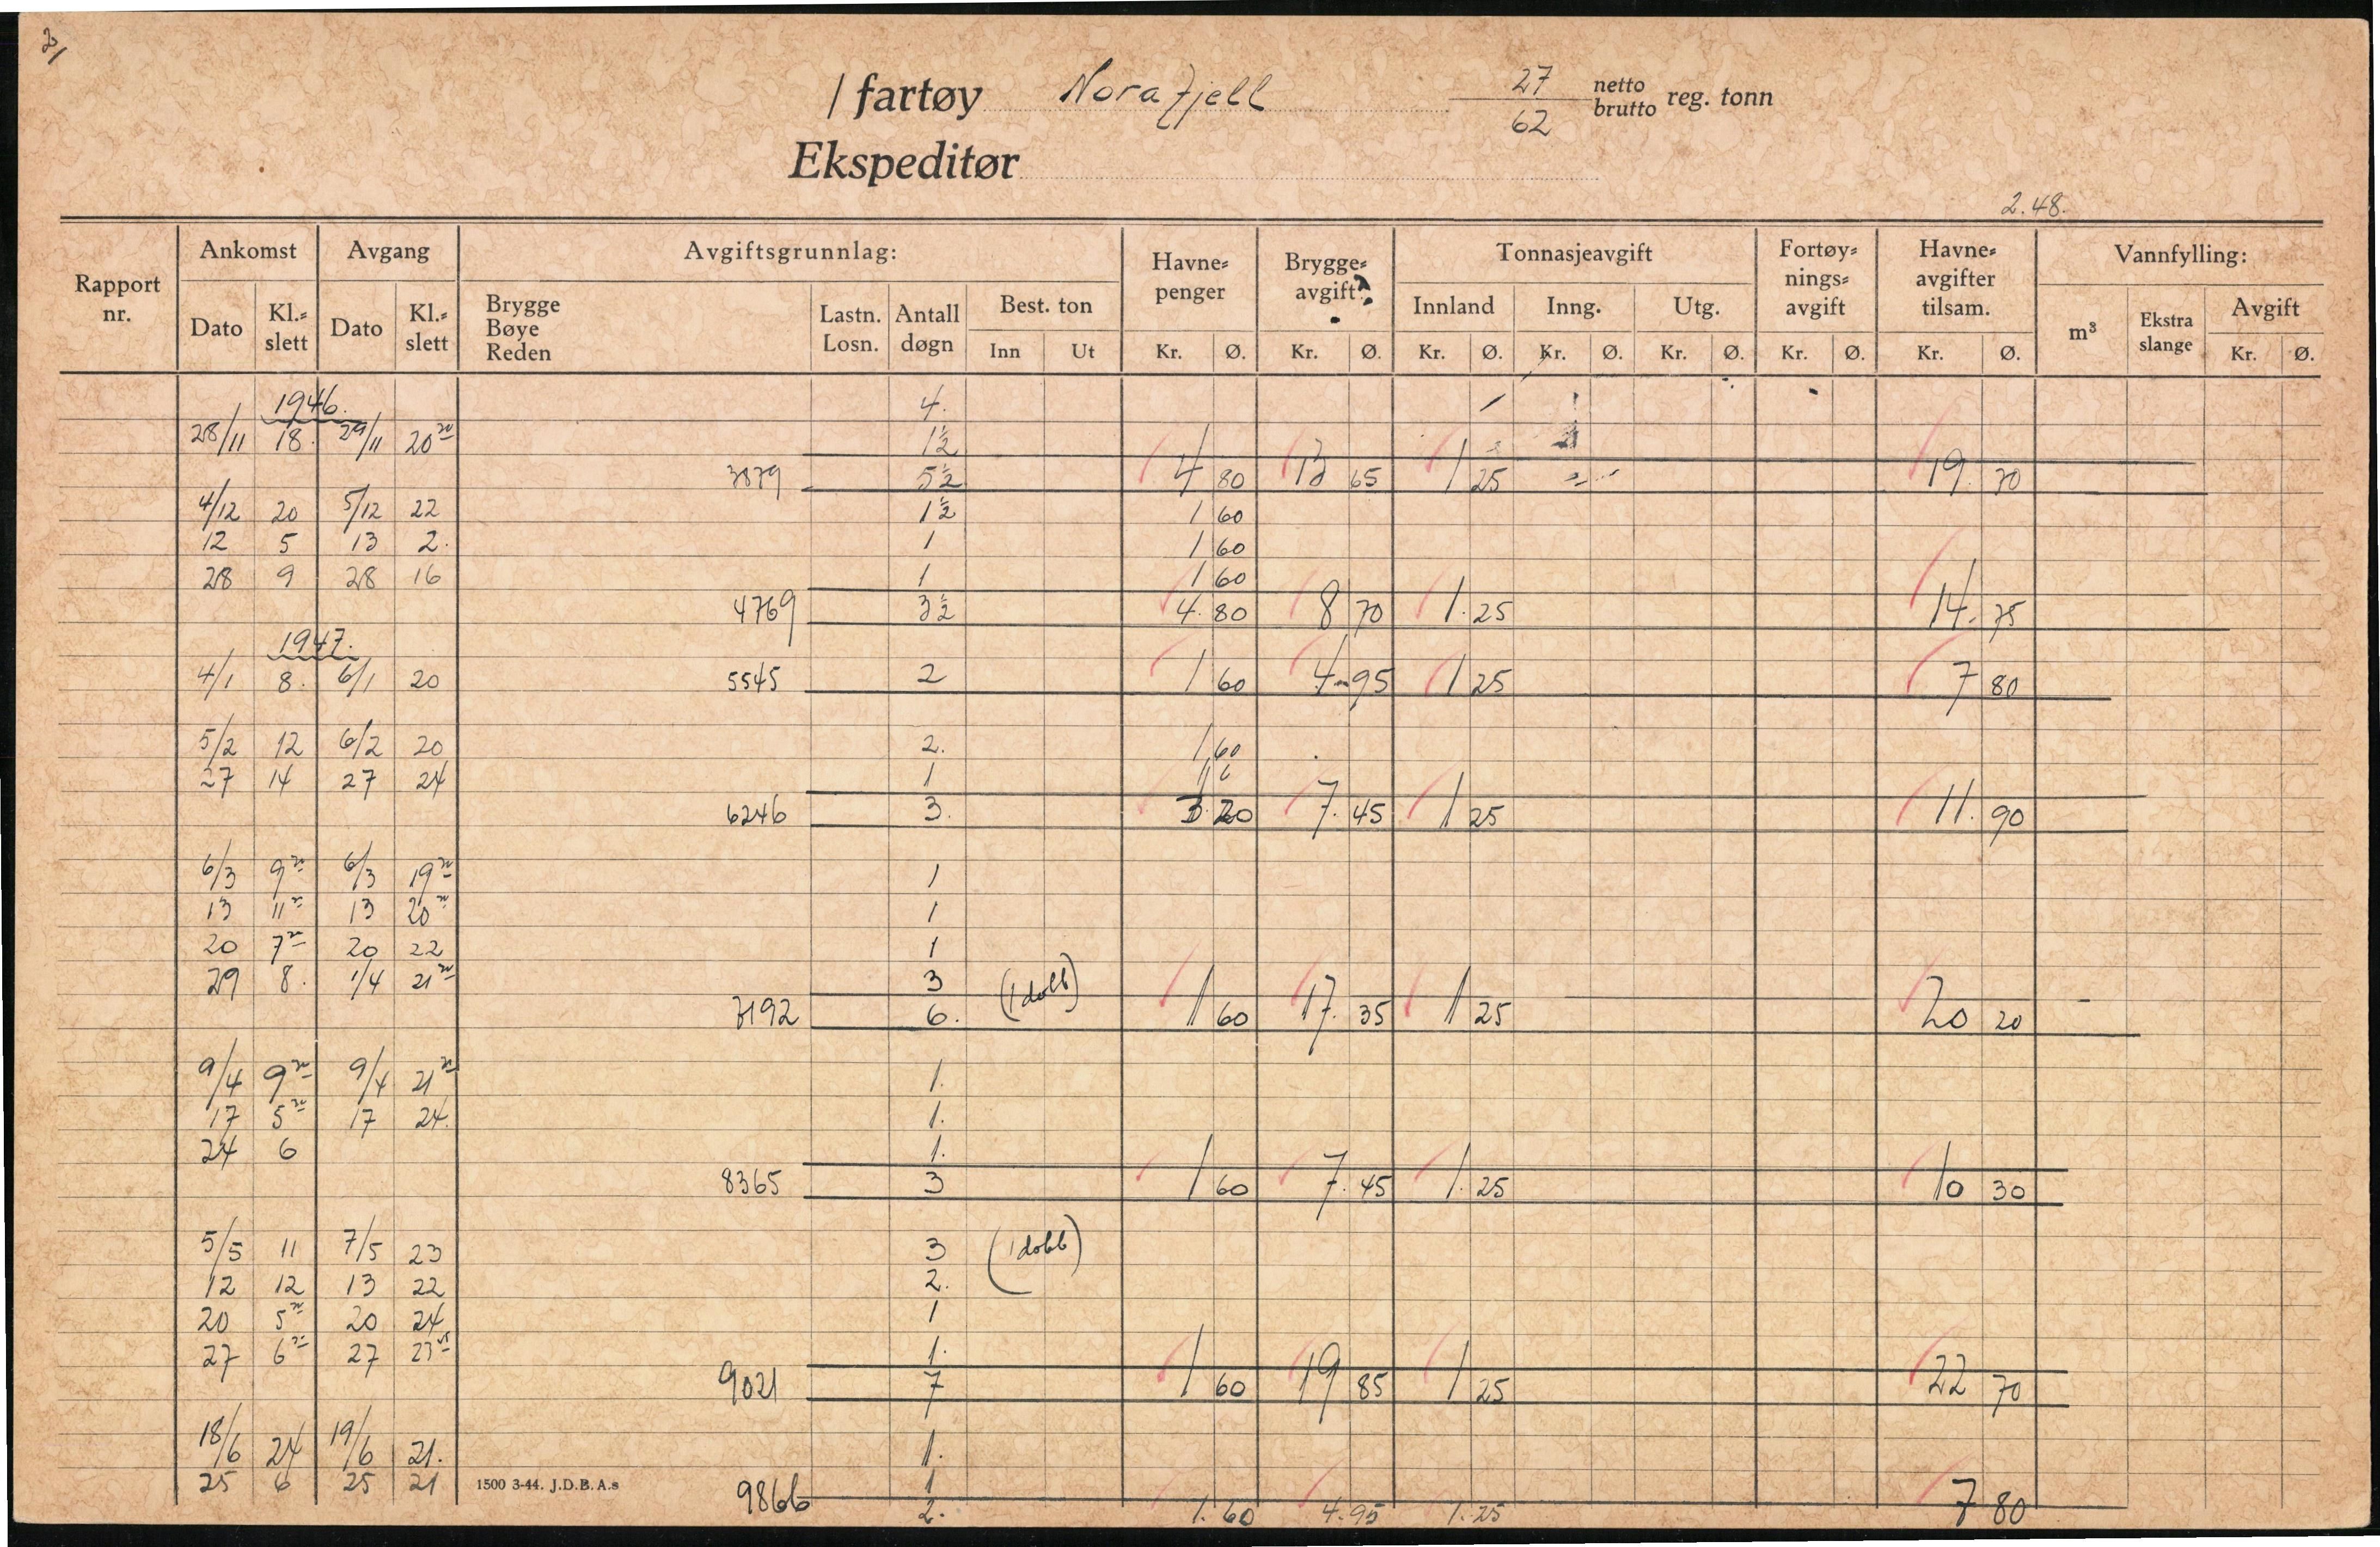 2/
/ fartøy Norafjell 27 netto
62 brutto reg. tonn
Ekspeditør
2.48.
Rapport nr. Ankomst Avgang Avgiftsgrunnlag: Havne- penger Brygge- avgift Tonnasjeavgift Fortøy- nings- avgift Havne- avgifter tilsam. Vannfylling:
Dato Kl.- slett Dato Kl.- slett Brygge Bøye Reden Lastn. Losn. Antall døgn Best. ton Innland Inng. Utg. m³ Ekstra slange Avgift
Inn Ut Kr. Ø. Kr. Ø. Kr. Ø. Kr. Ø. Kr. Ø. Kr. Ø. Kr. Ø. Kr. Ø.
1946. 4.
28/11 18. 29/11 20 1½
3879 5½ 4 80 13 65 1 25 19 70
4/12 20 5/12 22 1½ 1 60
12 5 13 2. 1 1 60
28 9 28 16 1 1 60
4769 3½ 4.80 8 70 1.25 14.75
1947.
4/1 8. 6/1 20 5545 2 1 60 4-95 1 25 7 80
5/2 12 6/2 20 2. 1 60
27 14 27 24 1 1 6
6246 3. 3.20 7.45 1 25 11.90
6/3 9 6/3 19 1
13 11 13 20 1
20 7 20 22 1
29 8. 1/4 21 3 (1 dobb)
7192 6. 1 60 17.35 1 25 20 20
9/4 9 9/4 21 1.
17 5 17 24. 1.
24 6 1.
8365 3 1 60 7.45 1.25 10 30
5/5 11 7/5 23 3 (1 dobb)
12 12 13 22 2.
20 5 20 24 1
27 6 27 23 1.
9021 7 1 60 19 85 1 25 22 70
18/6 24 19/6 21. 1.
25 6 25 21 1
1500 3-44. J.D.B.A.s
9866 2. 1.60 4.95 1.25 7 80